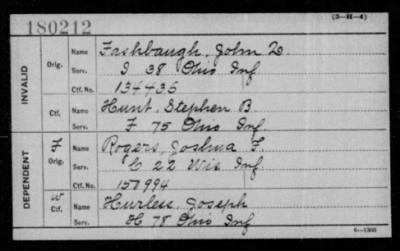 180212
(3—H—4)
INVALID
Orig. Name Fashbaugh, John D.
Serv. I 38 Ohio Inf
Ctf. No. 134435
Ctf. Name Hunt, Stephen B.
Serv. F 75 Ohio Inf.
DEPENDENT
F Orig. Name Rogers, Joshua F.
Serv. C 22 Wis Inf
Ctf. No. 157994
W Ctf. Name Hurless, Joseph
Serv. H 78 Ohio Inf
6—1308